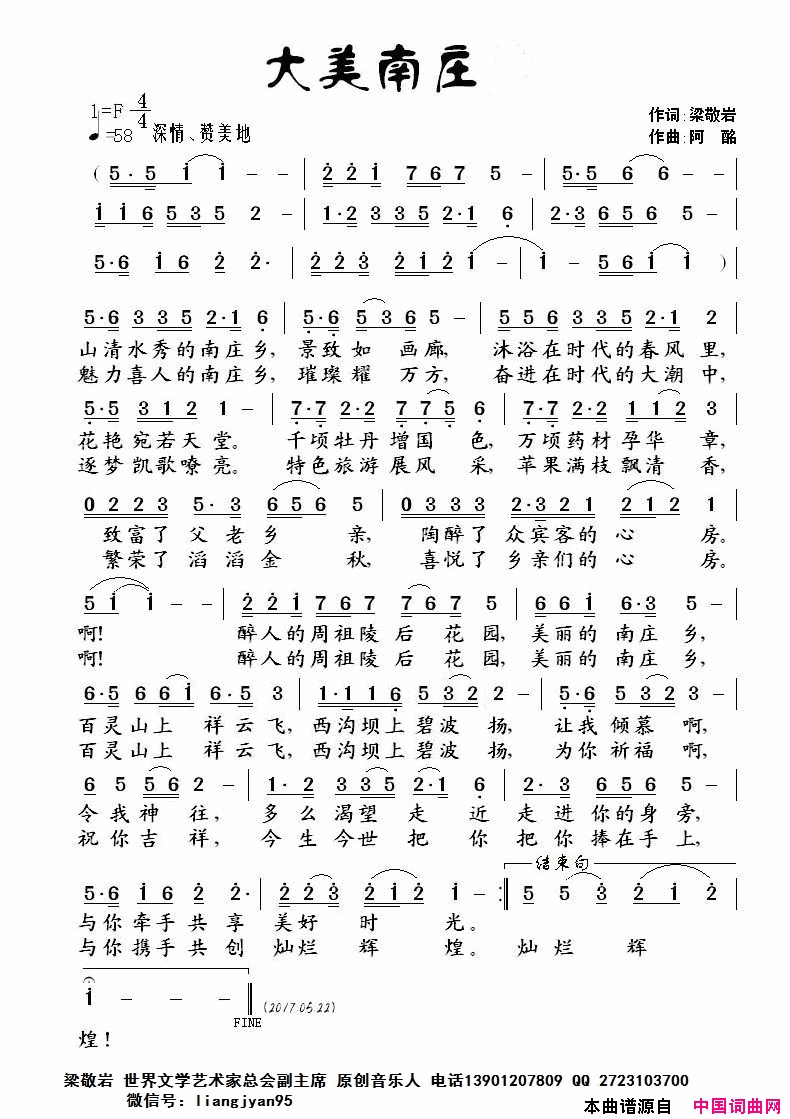 大美南庄
1=F 4/4
作词:梁敬岩
♩=58 深情、赞美地
作曲:阿 酩
( 5·5 i i - - | 2 2 i 7 6 7 5 - | 5·5 6 6 - - |
i i 6 5 3 5 2 - | 1·2 3 3 5 2·1 6 | 2·3 6 5 6 5 - |
5·6 i 6 2 2· | 2 2 3 2 i 2 i - | i - 5 6 i i ) |
5·6 3 3 5 2·1 6 | 5·6 5 3 6 5 - | 5 5 6 3 3 5 2·1 2 |
山清水秀的南庄乡, 景致如 画廊, 沐浴在时代的春风里,
魅力喜人的南庄乡, 璀璨耀 万方, 奋进在时代的大潮中,
5·5 3 1 2 1 - | 7·7 2·2 7 7 5 6 | 7·7 2·2 1 1 2 3 |
花艳宛若天堂。 千顷牡丹增国 色, 万顷药材孕华 章,
逐梦凯歌嘹亮。 特色旅游展风 采, 苹果满枝飘清 香,
0 2 2 3 5·3 6 5 6 5 | 0 3 3 3 2·3 2 1 2 1 2 1 |
致富了 父老乡 亲, 陶醉了 众宾客的 心 房。
繁荣了 滔滔金 秋, 喜悦了 乡亲们的 心 房。
5 i i - - | 2 2 i 7 6 7 7 6 7 5 | 6 6 i 6·3 5 - |
啊! 醉人的周祖陵 后 花园, 美丽的 南庄乡,
啊! 醉人的周祖陵 后 花园, 美丽的 南庄乡,
6·5 6 6 i 6·5 3 | 1·1 1 6 5 3 2 2 - | 5·6 5 3 2 3 - |
百灵山上 祥云飞, 西沟坝上碧波 扬, 让我 倾慕 啊,
百灵山上 祥云飞, 西沟坝上碧波 扬, 为你 祈福 啊,
6 5 5 6 2 - | 1·2 3 3 5 2·1 6 | 2·3 6 5 6 5 - |
令我神 往, 多么渴望 走 近 走进你的身旁,
祝你吉 祥, 今生今世 把 你 把你捧在手上,
结束句
5·6 i 6 2 2· | 2 2 3 2 i 2 i - :‖ 5 5 3 2 i 2 |
与你牵手共享 美好 时 光。
与你携手共创 灿烂 辉 煌。 灿烂 辉
i - - - ‖ (2017.05.22)
FINE
煌!
梁敬岩 世界文学艺术家总会副主席 原创音乐人 电话13901207809 QQ 2723103700
微信号：liangjyan95
本曲谱源自 中国词曲网